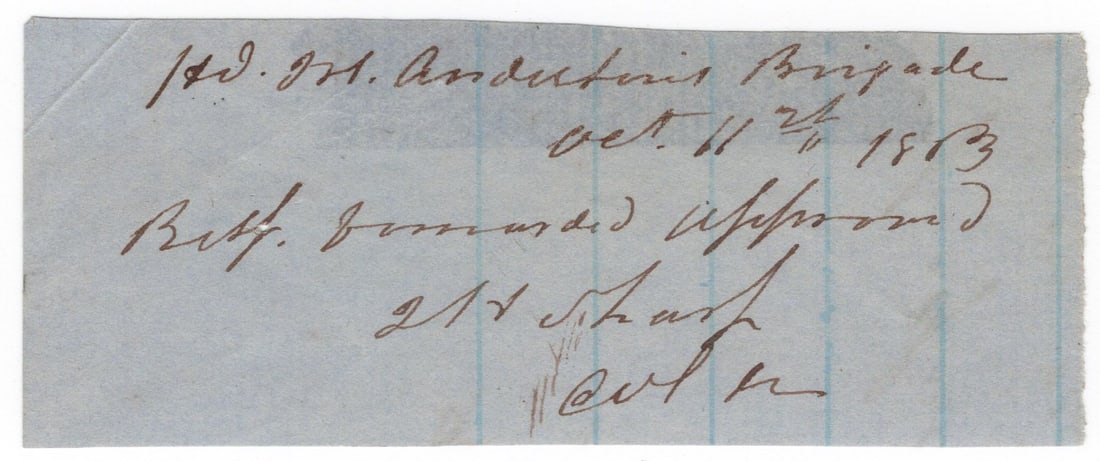 Hd. Qrt. Anderson's Brigade
Oct. 11th 1863
Retf. forwarded approved
J H Sharp
Col